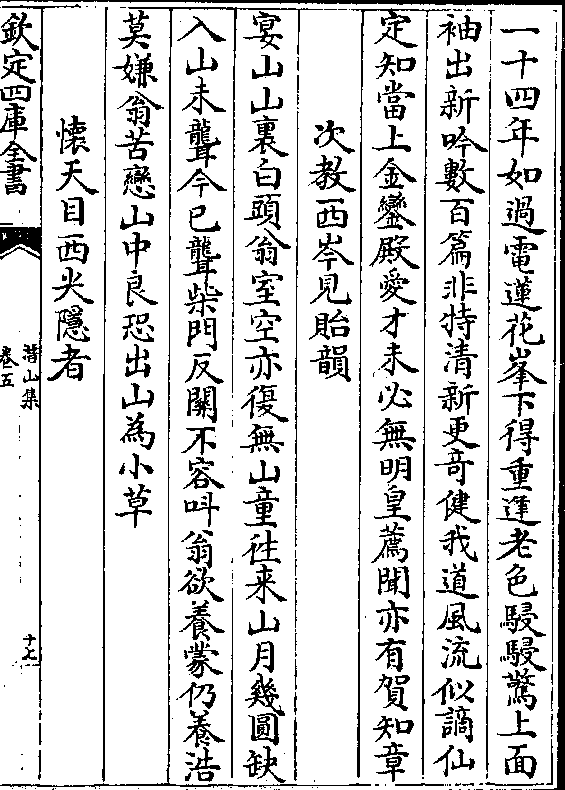 一十四年如過電蓮花峯下得重逢老色駸駸驚上面
袖出新吟數百篇非特清新更奇健我道風流似謫仙
定知當上金鑾殿愛才未必無明皇薦聞亦有賀知章
次教西岑見貽韻
宴山山裏白頭翁室空亦復無山童徃来山月幾圓缺
入山未聾今已聾柴門反關不容叫翁欲養蒙仍養浩
莫嫌翁苦戀山中良恐出山為小草
懷天目西尖隱者
欽定四庫全書
潛山集
卷五
十七